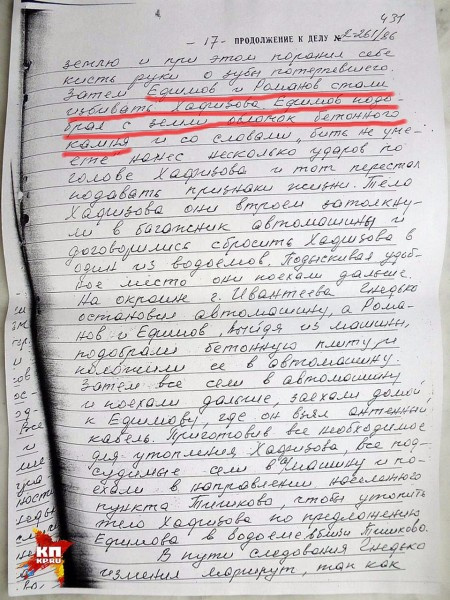 431
- 17 - ПРОДОЛЖЕНИЕ К ДЕЛУ № 2-261/86
землю и при этом поранил себе
кисть руки о зубы потерпевшего.
Затем Ефимов и Романов стали
избивать Хафизова Ефимов подо-
брал с земли обломок бетонного
камня и со словами „бить не уме-
ете" нанес несколько ударов по
голове Хафизова и тот перестал
подавать признаки жизни. Тело
Хафизова они втроем затолкну-
ли в багажник автомашины и
договорились сбросить Хафизова в
один из водоемов. Подыскивая удоб-
ное место они поехали дальше.
На окраине г. Ивантеева Гнедько
остановил автомашину, а Рома-
нов и Ефимов, выйдя из машины,
подобрали бетонную плиту и
положили ее в автомашину.
Затем все сели в автомашину
и поехали дальше, заехали домой
к Ефимову, где он взял антенный
кабель. Приготовив все необходимое
для утопления Хафизова, все под-
судимые сели в а/машину и по-
ехали в направлении населенного
пункта Тишково, чтобы утопить
тело Хафизова по предложению
Ефимова в водоеме вблизи Тишково.
В пути следования Гнедько
изменил маршрут, так как
КП
KP.RU